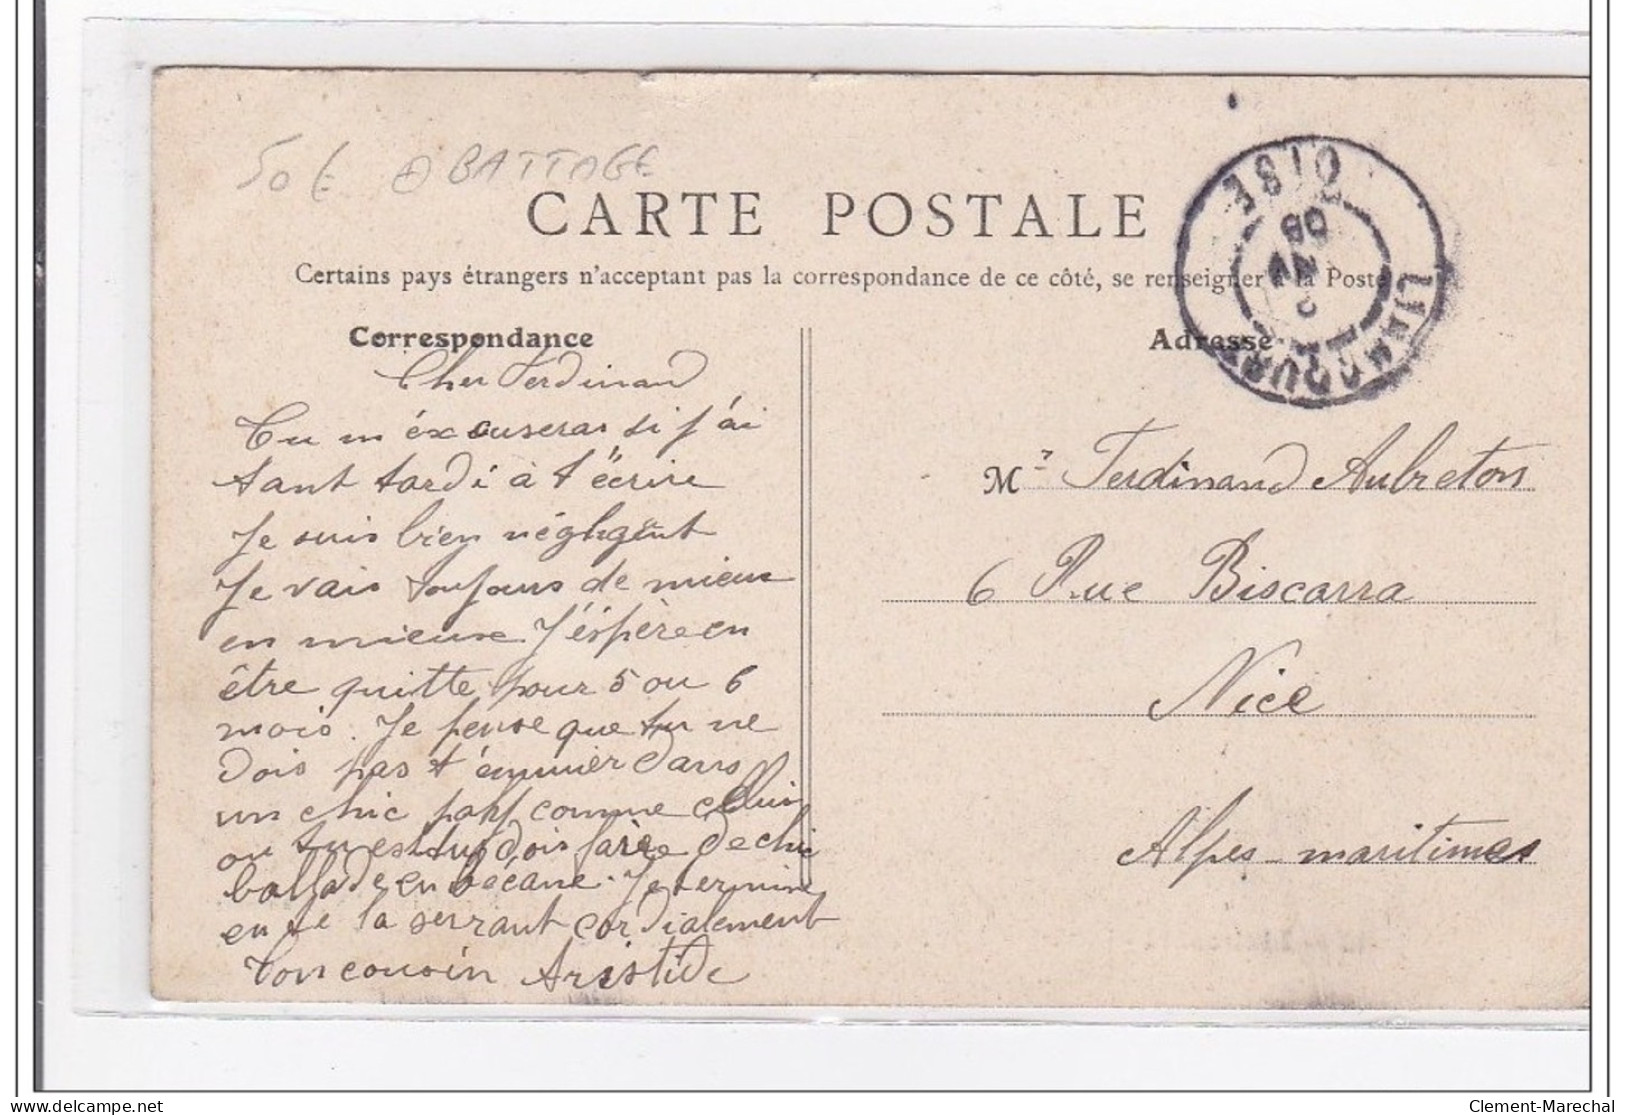 50 € BATTAGE
CARTE POSTALE
Certains pays étrangers n'acceptant pas la correspondance de ce côté, se renseigner à la Poste
Correspondance
Adresse
OISE
08
2
Cher Ferdinand
Tu m'éxcuseras si j'ai
tant tardé à t'écrire
Je suis bien négligent
Je vais toujours de mieux
en mieux J'éspère en
être quitte pour 5 ou 6
mois. Je pense que tu ne
dois pas t'ennuier dans
un chic pays comme celui
ou tu es tu dois faire de chic
ballade en bécane. Je termine
en te la serrant cordialement
Ton cousin Aristide
Mr Ferdinand Aubreton
6 Rue Biscarra
Nice
Alpes-maritimes
Clement-Marechal